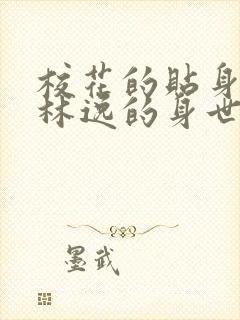 校花的贴身
林逸的身世
墨武